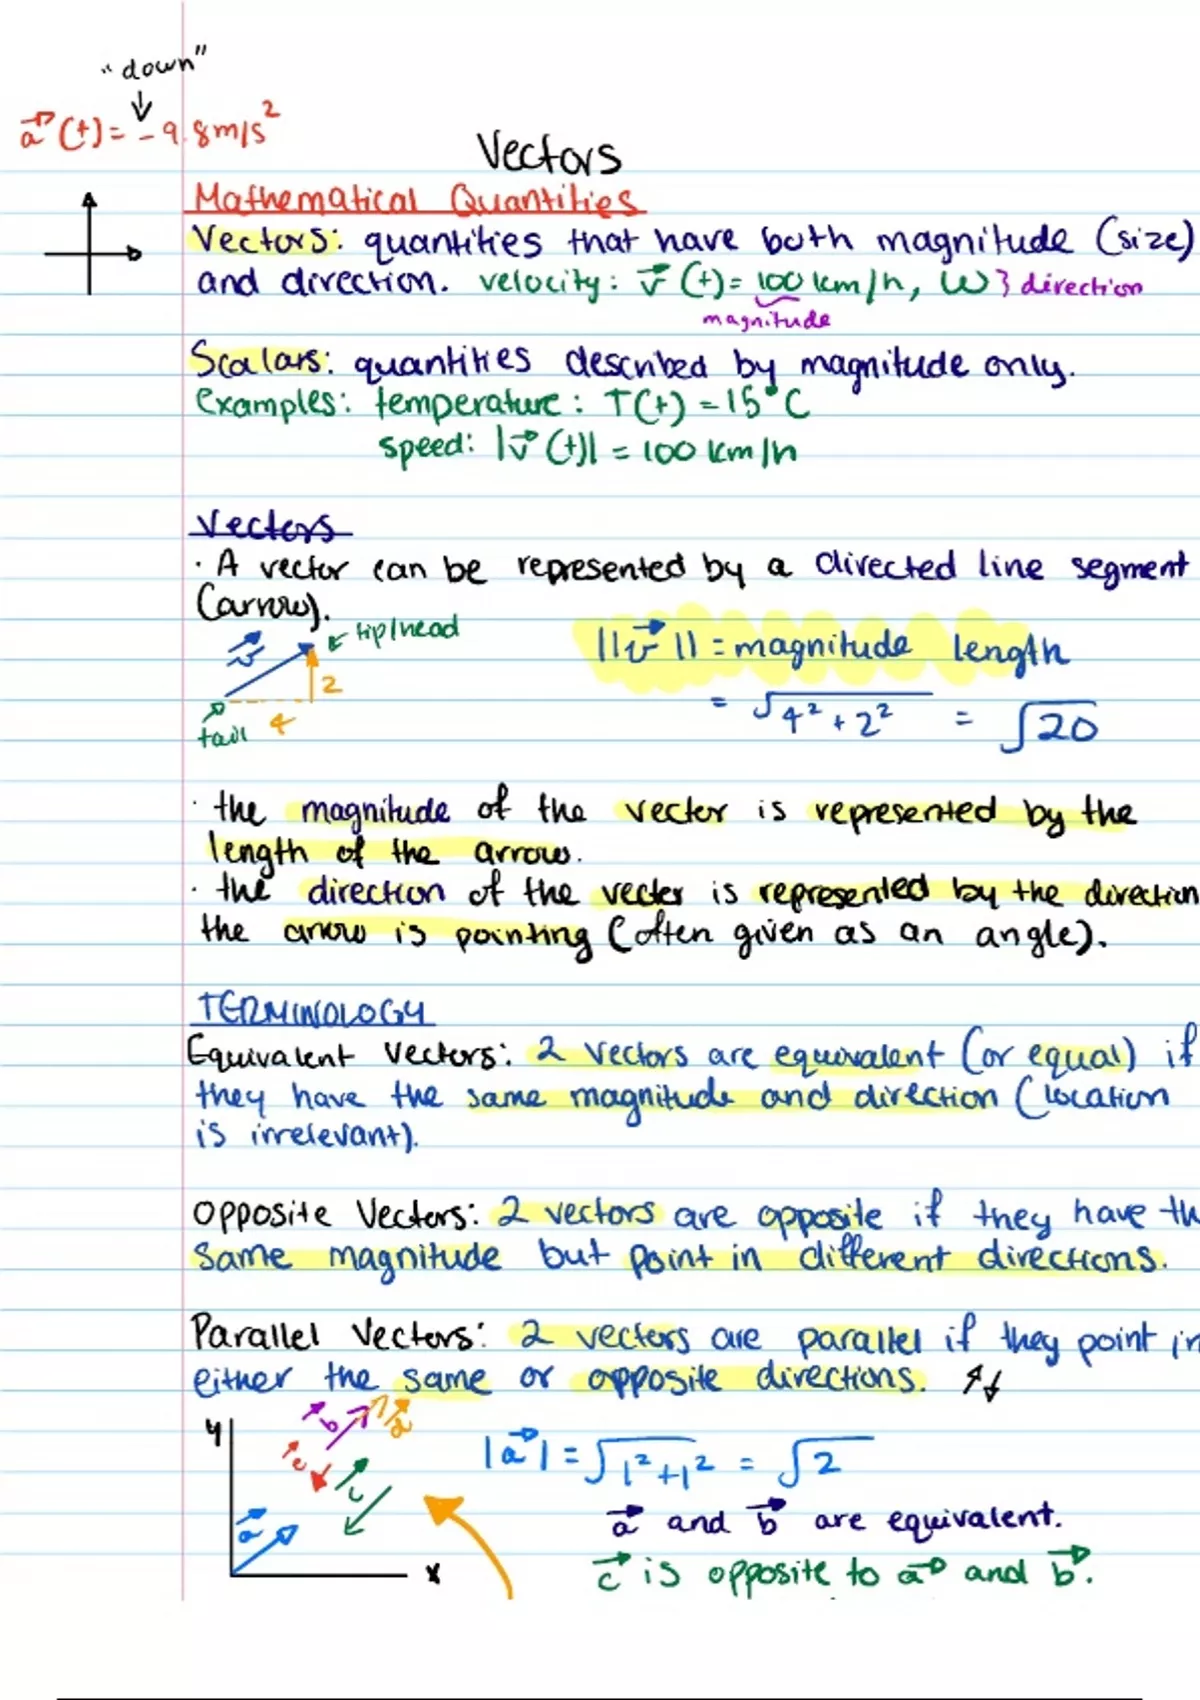 "down"
a⃗(t) = -9.8m/s²
Vectors
Mathematical Quantities
Vectors: quantities that have both magnitude (size)
and direction. velocity: v⃗(t) = 100 km/h, W } direction
magnitude
Scalars: quantities described by magnitude only.
examples: temperature: T(t) = 15°C
speed: |v⃗(t)| = 100 km/h
Vectors
· A vector can be represented by a directed line segment
(arrow).
v⃗
tip/head
2
4
tail
||v⃗|| = magnitude length
= √4² + 2² = √20
· the magnitude of the vector is represented by the
length of the arrow.
· the direction of the vector is represented by the direction
the arrow is pointing (often given as an angle).
TERMINOLOGY
Equivalent Vectors: 2 vectors are equivalent (or equal) if
they have the same magnitude and direction (location
is irrelevant).
Opposite Vectors: 2 vectors are opposite if they have th
same magnitude but point in different directions.
Parallel Vectors: 2 vectors are parallel if they point in
either the same or opposite directions.
y
b⃗
d⃗
e⃗
c⃗
a⃗
x
|a⃗| = √1²+1² = √2
a⃗ and b⃗ are equivalent.
c⃗ is opposite to a⃗ and b⃗.